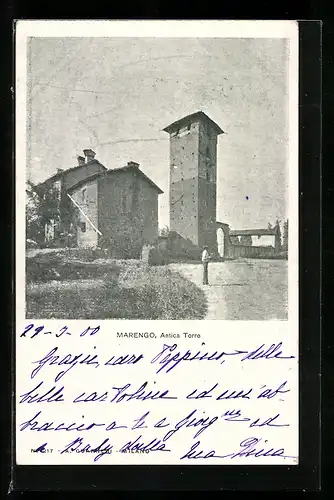 29-3-00 MARENGO, Antica Torre
Grazie, caro Peppino, delle
belle cartoline ed un' ab
braccio a te a Giog^ne ed
a Baby dalla
tua Dina
MILANO